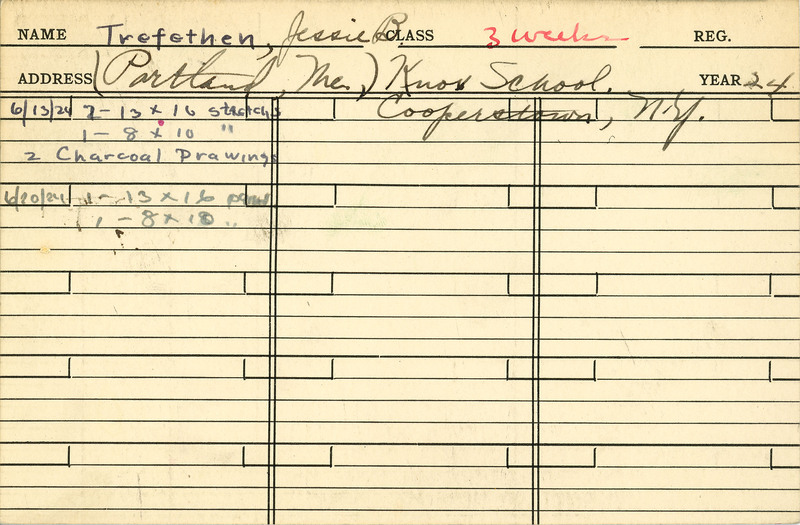 NAME Trefethen, Jessie B. CLASS 3 weeks REG.
ADDRESS (Portland, Me.) Knox School. YEAR 24
Cooperstown, N.Y.
6/13/24 2-13 x 16 stretch's
1 - 8 x 10 "
2 Charcoal Drawings
6/20/24 1 - 13 x 16
1 - 8 x 10 "